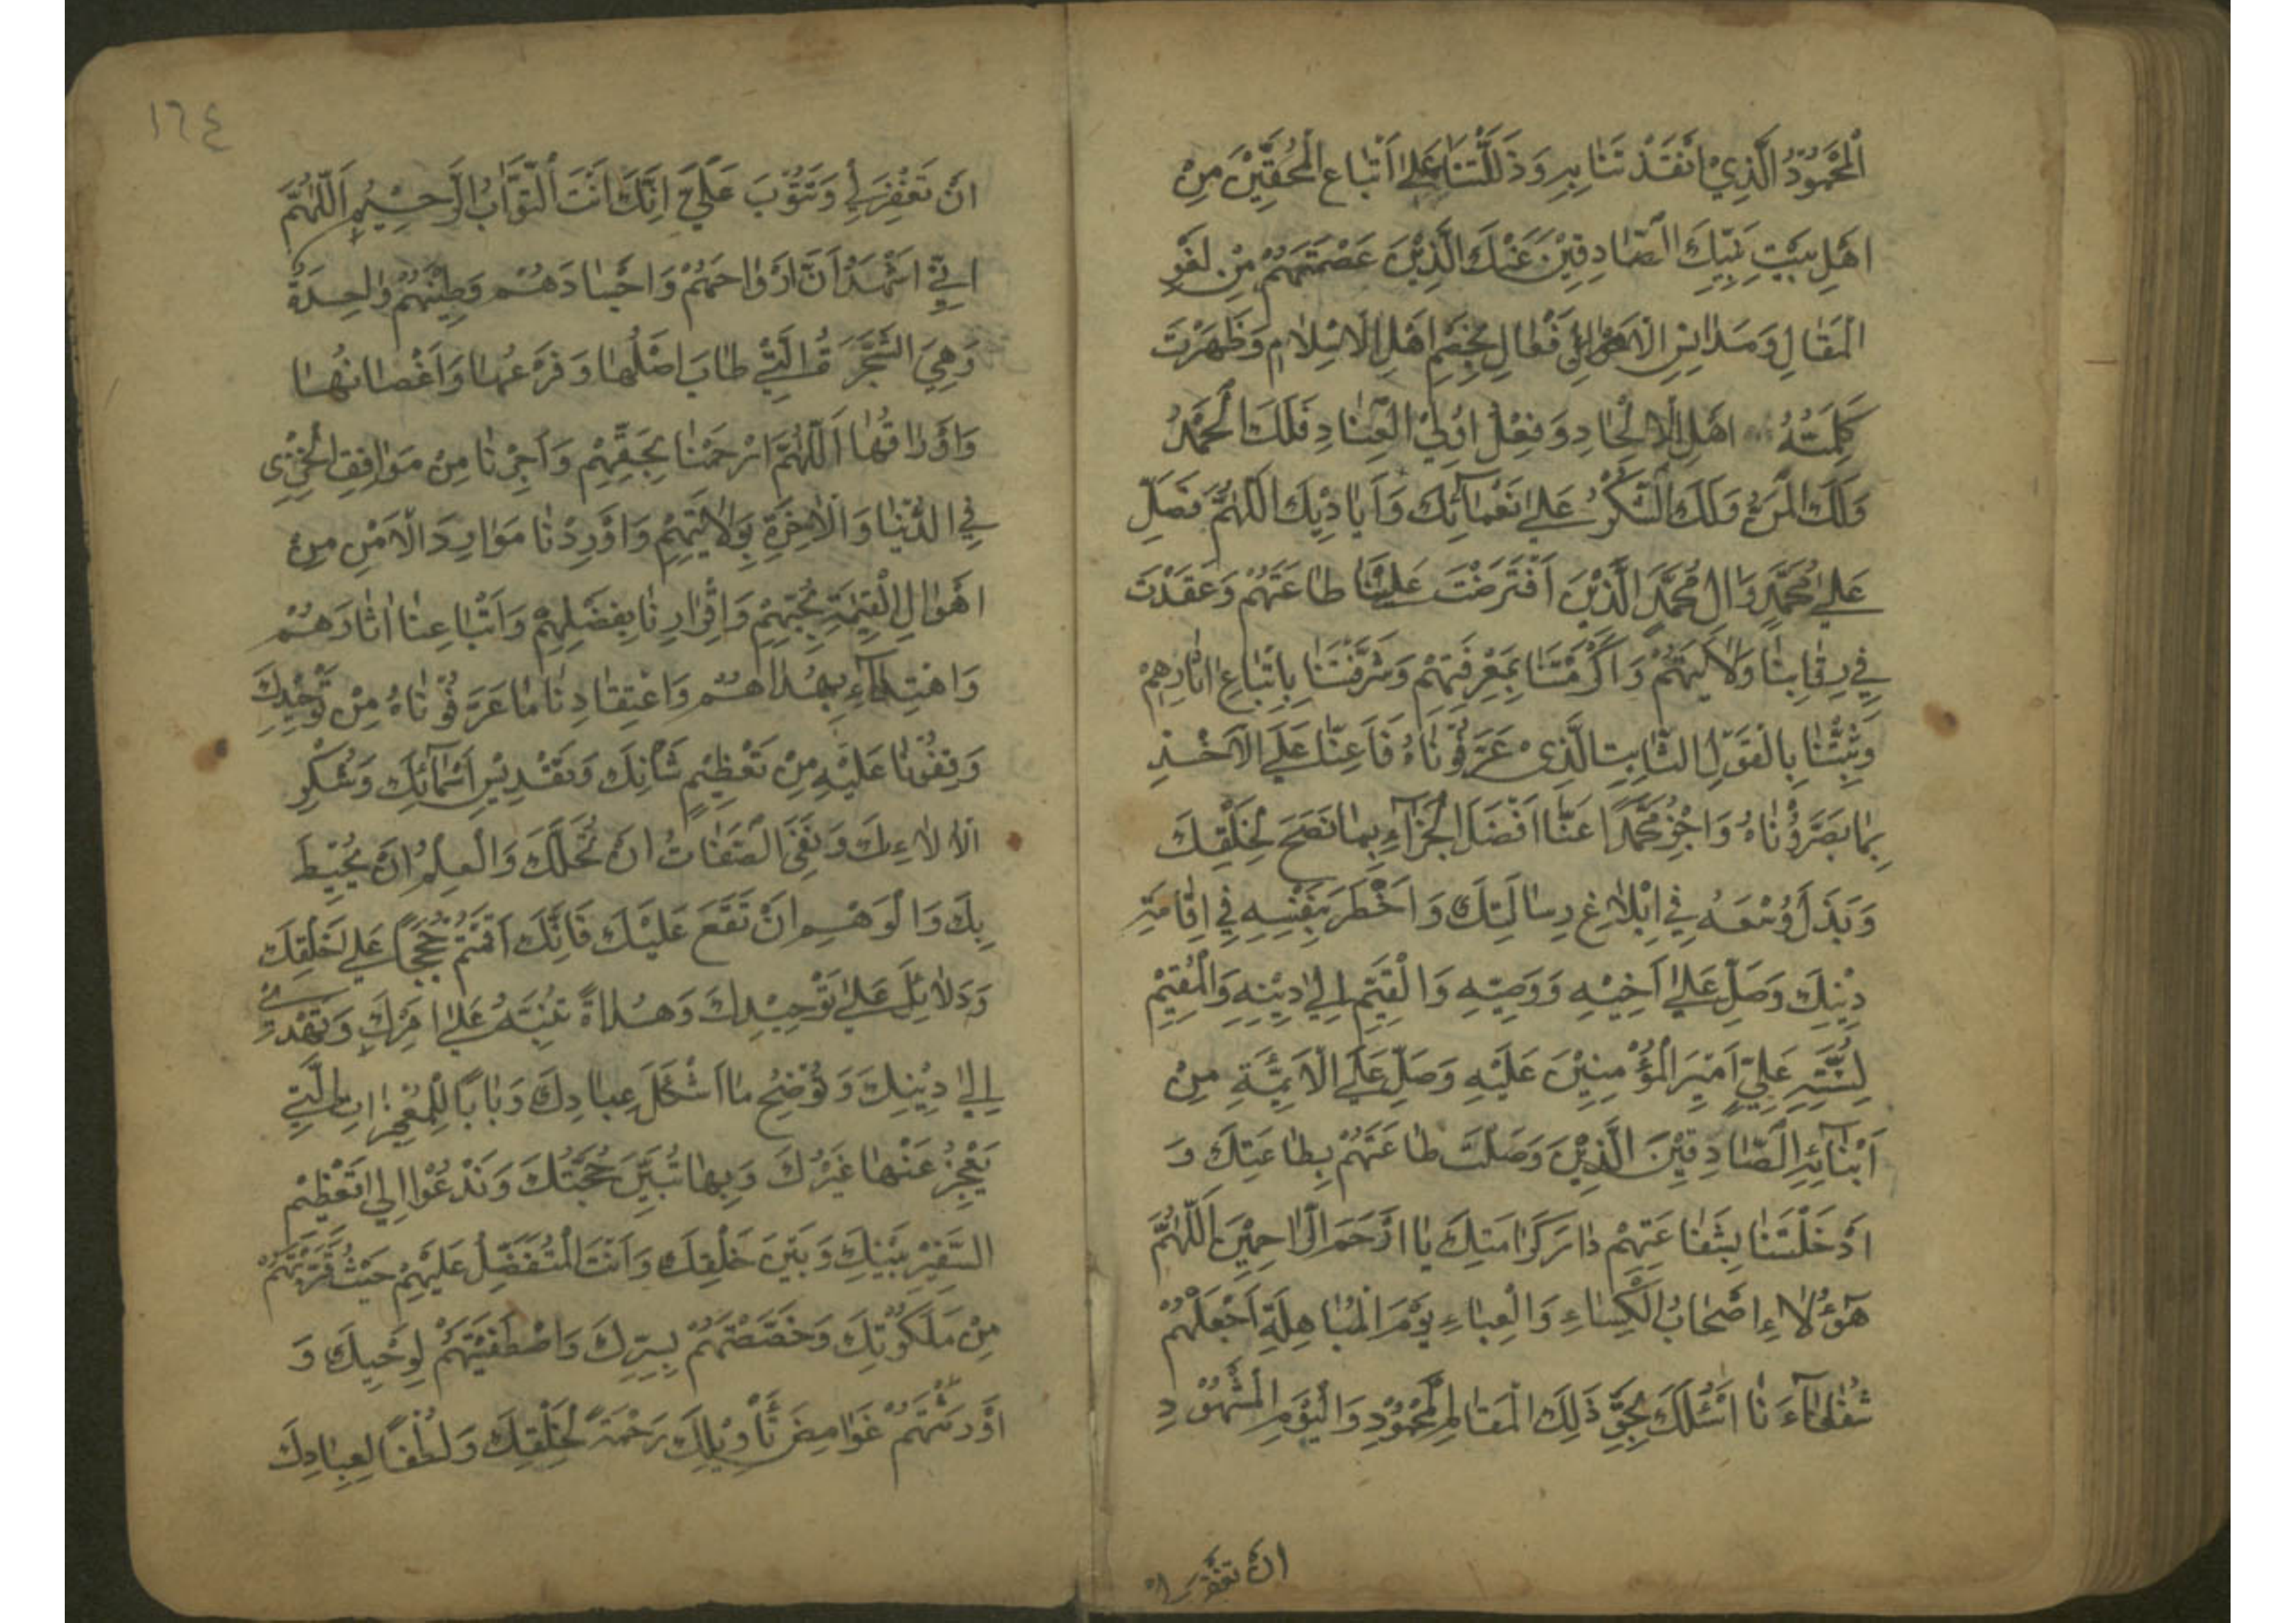 اَلْمَحْمُوْدُ الَّذِيْ اَنْقَذْتَنَا بِهِ وَذَلَلْتَنَا عَلٰى اَتْبَاعِ الْمُحِقِّيْنَ مِنْ
اَهْلِ بَيْتِ نَبِيِّكَ الصَّادِقِيْنَ عَنْكَ الَّذِيْنَ عَصَمْتَهُمْ مِنْ لَغْوِ
الْمَقَالِ وَمَدَانِسِ الْاَفْعَالِ لِخَصْمِ اَهْلِ الْاِسْلَامِ وَظَهَرَتْ
كَلِمَتُهُ اَهْلِ الْاِلْحَادِ وَفِعْلُ اُولِي الْعِنَادِ فَلَكَ الْحَمْدُ
وَلَكَ الْمَنُّ وَلَكَ الشُّكْرُ عَلٰى نَعْمَائِكَ وَاَيَادِيْكَ اَللّٰهُمَّ فَصَلِّ
عَلٰى مُحَمَّدٍ وَاٰلِ مُحَمَّدٍ الَّذِيْنَ اَفْتَرَضْتَ عَلَيْنَا طَاعَتَهُمْ وَعَقَدْتَ
فِيْ رِقَابِنَا وَلَايَتَهُمْ وَاَكْرَمْتَنَا بِمَعْرِفَتِهِمْ وَشَرَّفْتَنَا بِاِتِّبَاعِ اٰثَارِهِمْ
وَثَبِّتْنَا بِالْقَوْلِ الثَّابِتِ الَّذِيْ عَرَّفُوْنَاهُ فَاَعِنَّا عَلَى الْاَخْذِ
بِمَا بَصَّرُوْنَاهُ وَاجْزِ مُحَمَّدًا عَنَّا اَفْضَلَ الْجَزَآءِ بِمَا نَصَحَ لِخَلْقِكَ
وَبَذَلَ وُسْعَهُ فِيْ اِبْلَاغِ رِسَالَتِكَ وَاَخْطَرَ بِنَفْسِهِ فِيْ اِقَامَةِ
دِيْنِكَ وَصَلِّ عَلٰى اَخِيْهِ وَوَصِيِّهِ وَالْقَيِّمِ اِلٰى دِيْنِهِ وَالْمُقِيْمِ
لِسُنَّتِهِ عَلِيٍّ اَمِيْرِ الْمُؤْمِنِيْنَ عَلَيْهِ وَصَلِّ عَلَى الْاَئِمَّةِ مِنْ
اَبْنَائِهِ الصَّادِقِيْنَ الَّذِيْنَ وَصَلْتَ طَاعَتَهُمْ بِطَاعَتِكَ وَ
اَدْخَلْتَنَا بِشَفَاعَتِهِمْ دَارَ كَرَامَتِكَ يَا اَرْحَمَ الرَّاحِمِيْنَ اَللّٰهُمَّ
هٰٓؤُلَاءِ اَصْحَابُ الْكِسَاءِ وَالْعِبَاءِ يَوْمَ الْمُبَاهِلَةِ اَجْعَلْهُمْ
شُفَعَآءَنَا اَسْئَلُكَ بِحَقِّ ذٰلِكَ الْمَقَامِ الْمَحْمُوْدِ وَالْيَوْمِ الْمَشْهُوْدِ
ان تغفر لي
١٦٤
اَنْ تَغْفِرَ لِيْ وَتَتُوْبَ عَلَيَّ اِنَّكَ اَنْتَ التَّوَّابُ الرَّحِيْمُ اَللّٰهُمَّ
اِنِّيْ اَشْهَدُ اَنَّ اَرْوَاحَهُمْ وَاَجْسَادَهُمْ وَطِيْنَتَهُمْ وَاحِدَةٌ
وَهِيَ الشَّجَرَةُ الَّتِيْ طَابَ اَصْلُهَا وَفَرْعُهَا وَاَغْصَانُهَا
وَاَوْرَاقُهَا اَللّٰهُمَّ ارْحَمْنَا بِحَقِّهِمْ وَاَجِرْنَا مِنْ مَوَاقِفِ الْخِزْيِ
فِي الدُّنْيَا وَالْاٰخِرَةِ بِوَلَايَتِهِمْ وَاَوْرِدْنَا مَوَارِدَ الْاَمْنِ مِنْ
اَهْوَالِ الْقِيٰمَةِ بِحُبِّهِمْ وَاِقْرَارِنَا بِفَضْلِهِمْ وَاَتْبَاعِنَا اٰثَارَهُمْ
وَاهْتِدَآءِ بِهُدَاهُمْ وَاعْتِقَادِنَا مَا عَرَّفُوْنَاهُ مِنْ تَوْحِيْدِكَ
وَوَقَفُوْنَا عَلَيْهِ مِنْ تَعْظِيْمِ شَأْنِكَ وَتَقْدِيْسِ اَسْمَآئِكَ وَشُكْرِ
اٰلَائِكَ وَنَفْيِ الصِّفَاتِ اَنْ تَحُلَّكَ وَالْعِلْمِ اَنْ يُحِيْطَ
بِكَ وَالْوَهْمِ اَنْ تَقَعَ عَلَيْكَ فَاِنَّكَ اَقَمْتَهُمْ حُجَجًا عَلٰى خَلْقِكَ
وَدَلَائِلَ عَلٰى تَوْحِيْدِكَ وَهُدَاةً تُنَبِّهُ عَلٰى اَمْرِكَ وَتَهْدِيْ
اِلٰى دِيْنِكَ وَتُوْضِحُ مَا اَشْكَلَ عِبَادِكَ وَبَابًا لِلْمُعْجِزَاتِ الَّتِيْ
يَعْجِزُ عَنْهَا غَيْرُكَ وَبِهَا تُبَيِّنُ حُجَّتُكَ وَتَدْعُوْا اِلٰى تَعْظِيْمِ
السَّفِيْرِ بَيْنِكَ وَبَيْنَ خَلْقِكَ وَاَنْتَ الْمُتَفَضِّلُ عَلَيْهِمْ حَيْثُ قَرَّبْتَهُمْ
مِنْ مَلَكُوْتِكَ وَخَصَصْتَهُمْ بِسِرِّكَ وَاصْطَفَيْتَهُمْ لِوَحْيِكَ وَ
اَوْرَثْتَهُمْ غَوَامِضَ تَأْوِيْلِكَ رَحْمَةً لِخَلْقِكَ وَلُطْفًا لِعِبَادِكَ